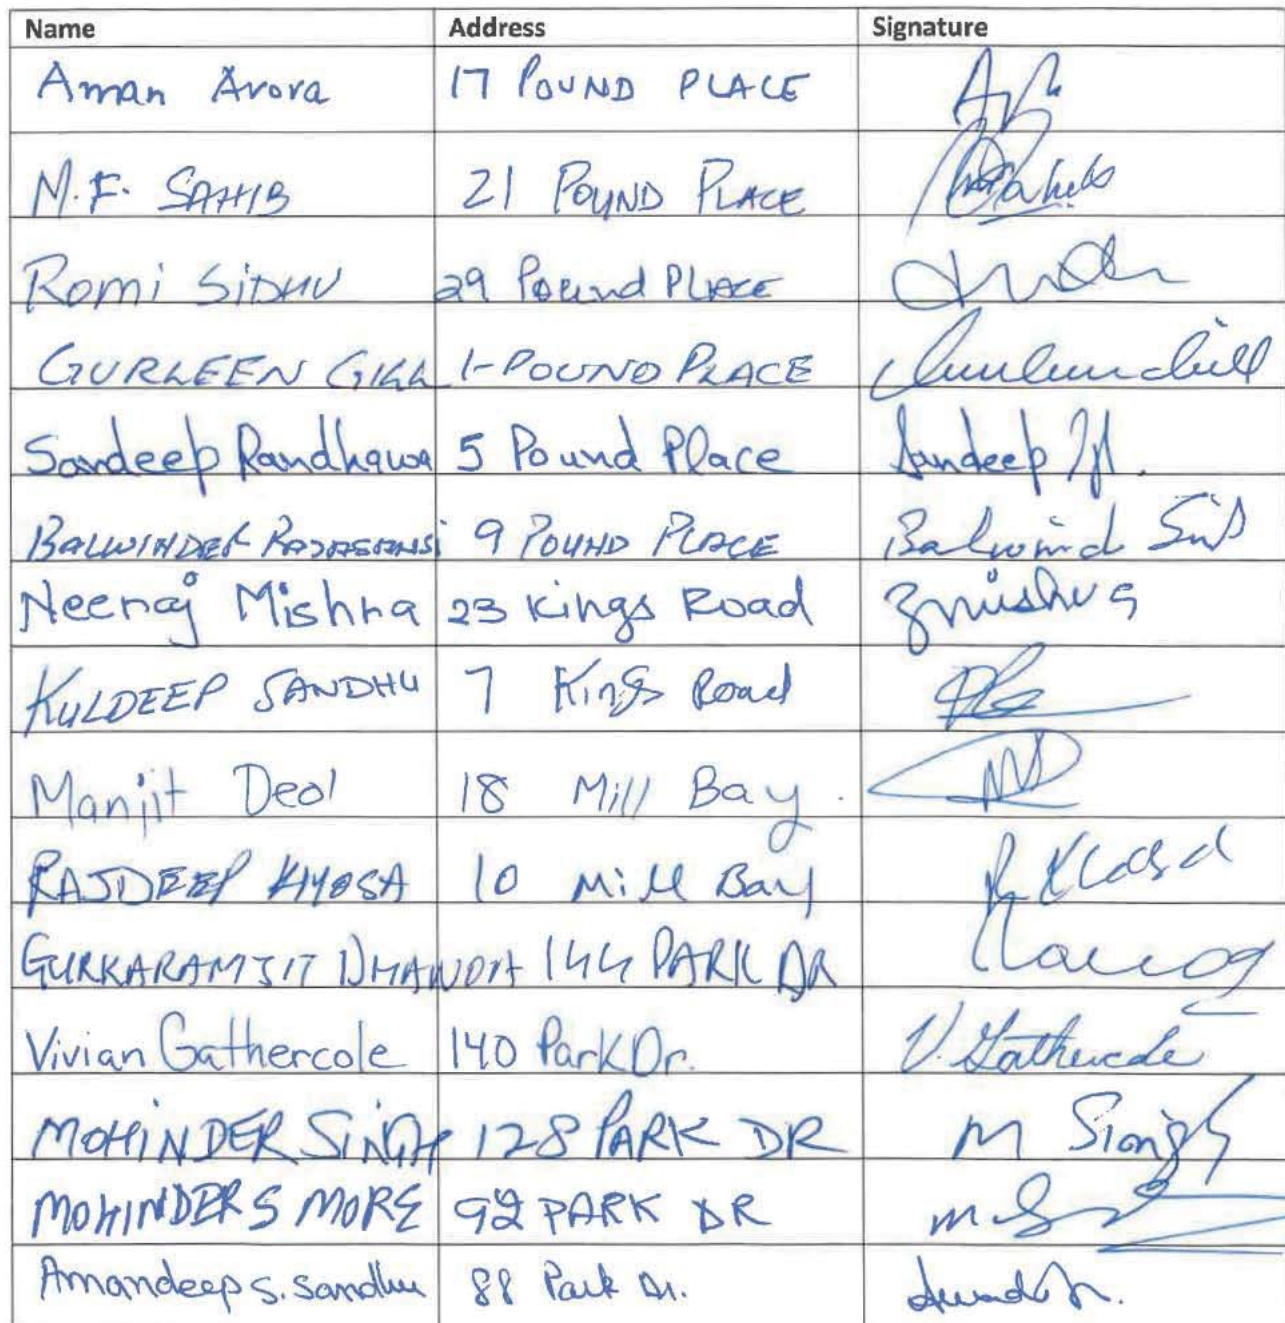 Name Address Signature
Aman Arora 17 POUND PLACE
M.F. SAHIB 21 POUND PLACE
Romi SIDHU 29 Pound PLACE
GURLEEN GILL 1-POUND PLACE
Sandeep Randhawa 5 Pound Place Sandeep
BALWINDER 9 POUND PLACE Balwind
Neeraj Mishra 23 Kings Road
KULDEEP SANDHU 7 Kings Road
Manjit Deol 18 Mill Bay.
RAJDEEP KHOSA 10 Mill Bay
GURKARAMJIT 144 PARK DR
Vivian Gathercole 140 Park Dr. V. Gathercole
MOHINDER SINGH 128 PARK DR M Singh
MOHINDER S MORE 92 PARK DR
Amandeep S. Sandhu 88 Park Dr.